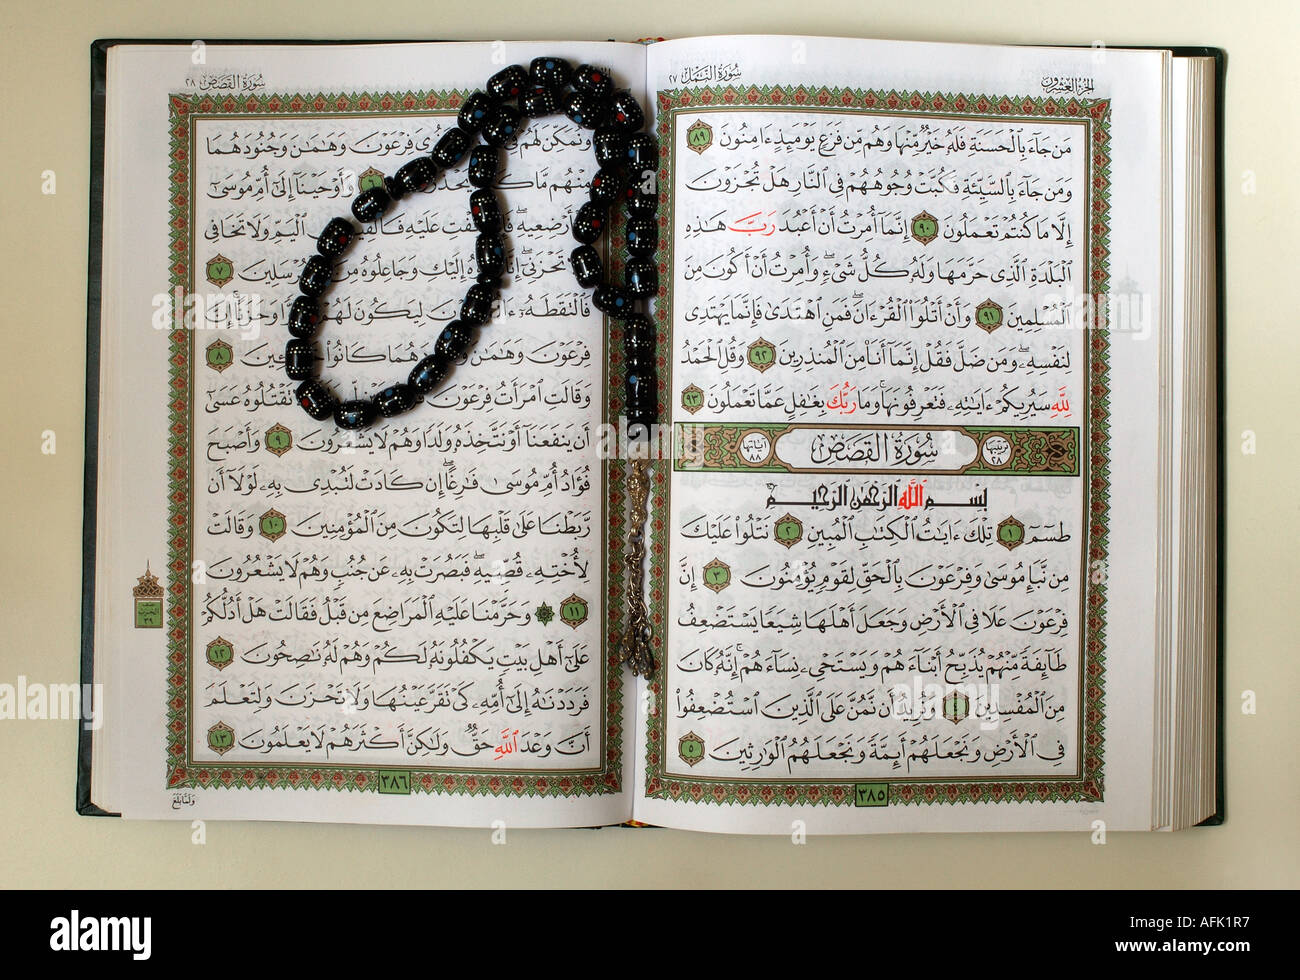 الجزء العشرون
سورة النمل ٢٧
مَن جَآءَ بِٱلۡحَسَنَةِ فَلَهُۥ خَيۡرٞ مِّنۡهَا وَهُم مِّن فَزَعٖ يَوۡمَئِذٍ ءَامِنُونَ ٨٩
وَمَن جَآءَ بِٱلسَّيِّئَةِ فَكُبَّتۡ وُجُوهُهُمۡ فِي ٱلنَّارِ هَلۡ تُجۡزَوۡنَ
إِلَّا مَا كُنتُمۡ تَعۡمَلُونَ ٩٠ إِنَّمَآ أُمِرۡتُ أَنۡ أَعۡبُدَ رَبَّ هَٰذِهِ
ٱلۡبَلۡدَةِ ٱلَّذِي حَرَّمَهَا وَلَهُۥ كُلُّ شَيۡءٖۖ وَأُمِرۡتُ أَنۡ أَكُونَ مِنَ
ٱلۡمُسۡلِمِينَ ٩١ وَأَنۡ أَتۡلُوَاْ ٱلۡقُرۡءَانَۖ فَمَنِ ٱهۡتَدَىٰ فَإِنَّمَا يَهۡتَدِي
لِنَفۡسِهِۦۖ وَمَن ضَلَّ فَقُلۡ إِنَّمَآ أَنَا۠ مِنَ ٱلۡمُنذِرِينَ ٩٢ وَقُلِ ٱلۡحَمۡدُ
لِلَّهِ سَيُرِيكُمۡ ءَايَٰتِهِۦ فَتَعۡرِفُونَهَاۚ وَمَا رَبُّكَ بِغَٰفِلٍ عَمَّا تَعۡمَلُونَ ٩٣
ترتيبها ٢٨ سُورَةُ القَصَصِ آياتها ٨٨
بِسۡمِ ٱللَّهِ ٱلرَّحۡمَٰنِ ٱلرَّحِيمِ
طسٓمٓ ١ تِلۡكَ ءَايَٰتُ ٱلۡكِتَٰبِ ٱلۡمُبِينِ ٢ نَتۡلُواْ عَلَيۡكَ
مِن نَّبَإِ مُوسَىٰ وَفِرۡعَوۡنَ بِٱلۡحَقِّ لِقَوۡمٖ يُؤۡمِنُونَ ٣ إِنَّ
فِرۡعَوۡنَ عَلَا فِي ٱلۡأَرۡضِ وَجَعَلَ أَهۡلَهَا شِيَعٗا يَسۡتَضۡعِفُ
طَآئِفَةٗ مِّنۡهُمۡ يُذَبِّحُ أَبۡنَآءَهُمۡ وَيَسۡتَحۡيِۦ نِسَآءَهُمۡۚ إِنَّهُۥ كَانَ
مِنَ ٱلۡمُفۡسِدِينَ ٤ وَنُرِيدُ أَن نَّمُنَّ عَلَى ٱلَّذِينَ ٱسۡتُضۡعِفُواْ
فِي ٱلۡأَرۡضِ وَنَجۡعَلَهُمۡ أَئِمَّةٗ وَنَجۡعَلَهُمُ ٱلۡوَٰرِثِينَ ٥
٣٨٥
سورة القصص ٢٨
وَنُمَكِّنَ لَهُمۡ فِرۡعَوۡنَ وَهَٰمَٰنَ وَجُنُودَهُمَا
مِنۡهُم مَّا ٦ وَأَوۡحَيۡنَآ إِلَىٰٓ أُمِّ مُوسَىٰٓ
أَرۡضِعِيهِۖ عَلَيۡهِ ٱلۡيَمِّ وَلَا تَخَافِي
تَحۡزَنِيٓۖ إِلَيۡكِ وَجَاعِلُوهُ مِنَ ٧
فَٱلۡتَقَطَهُۥٓ لِيَكُونَ لَهُمۡ وَحَزَنًاۗ إِنَّ
فِرۡعَوۡنَ وَهَٰمَٰنَ كَانُواْ ٨
وَقَالَتِ ٱمۡرَأَتُ فِرۡعَوۡنَ تَقۡتُلُوهُ عَسَىٰٓ
أَن يَنفَعَنَآ أَوۡ نَتَّخِذَهُۥ وَلَدٗا وَهُمۡ لَا يَشۡعُرُونَ ٩ وَأَصۡبَحَ
فُؤَادُ أُمِّ مُوسَىٰ فَٰرِغًاۖ إِن كَادَتۡ لَتُبۡدِي بِهِۦ لَوۡلَآ أَن
رَّبَطۡنَا عَلَىٰ قَلۡبِهَا لِتَكُونَ مِنَ ٱلۡمُؤۡمِنِينَ ١٠ وَقَالَتۡ
لِأُخۡتِهِۦ قُصِّيهِۖ فَبَصُرَتۡ بِهِۦ عَن جُنُبٖ وَهُمۡ لَا يَشۡعُرُونَ
١١ وَحَرَّمۡنَا عَلَيۡهِ ٱلۡمَرَاضِعَ مِن قَبۡلُ فَقَالَتۡ هَلۡ أَدُلُّكُمۡ
عَلَىٰٓ أَهۡلِ بَيۡتٖ يَكۡفُلُونَهُۥ لَكُمۡ وَهُمۡ لَهُۥ نَٰصِحُونَ ١٢
فَرَدَدۡنَٰهُ إِلَىٰٓ أُمِّهِۦ كَيۡ تَقَرَّ عَيۡنُهَا وَلَا تَحۡزَنَ وَلِتَعۡلَمَ
أَنَّ وَعۡدَ ٱللَّهِ حَقّٞ وَلَٰكِنَّ أَكۡثَرَهُمۡ لَا يَعۡلَمُونَ ١٣
٣٨٦
وَلَمَّا بَلَغَ
alamy
AFK1R7
www.alamy.com